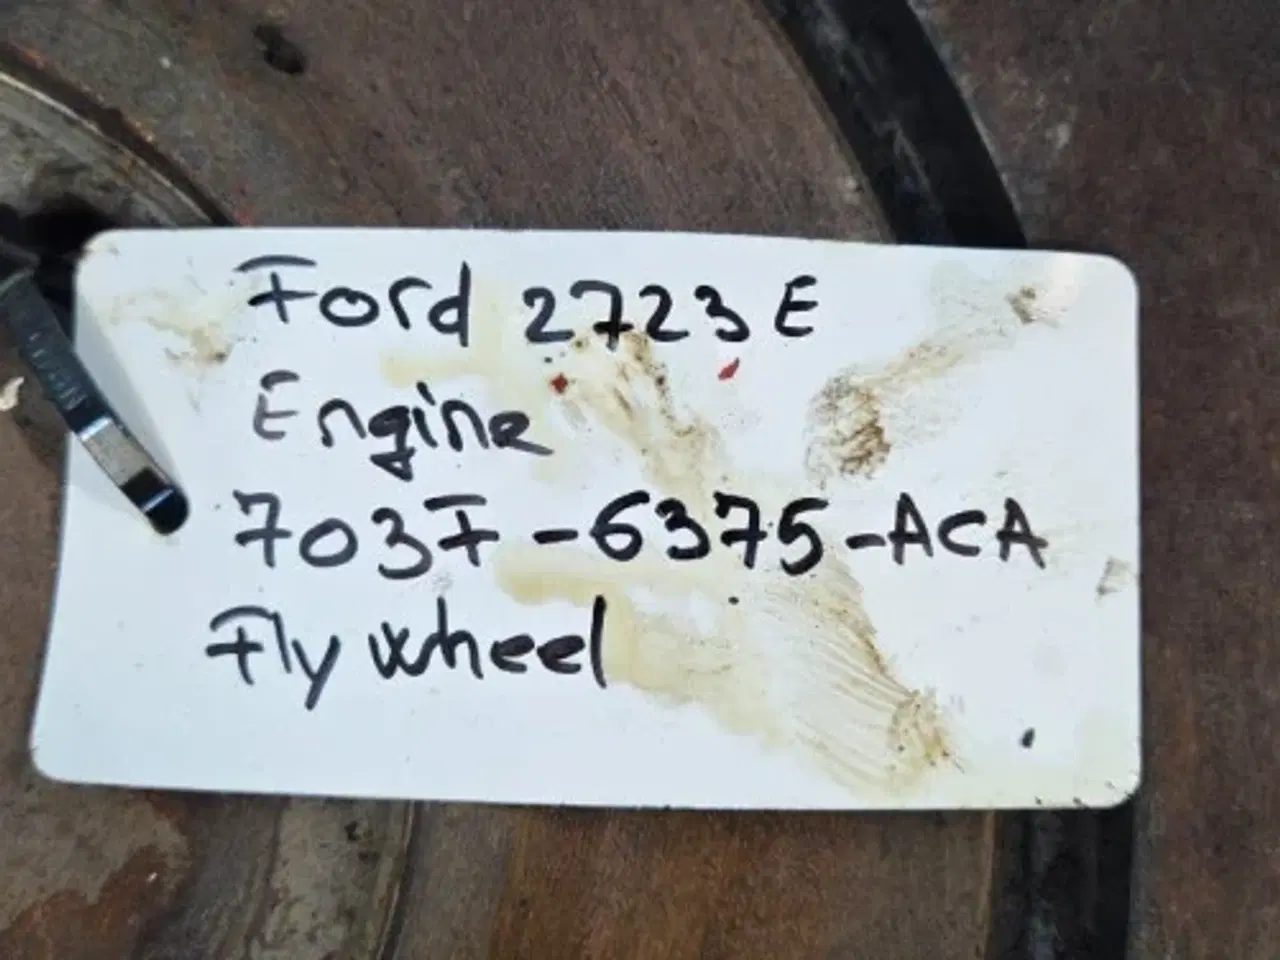 Ford 2723 E
Engine
703F-6375-ACA
Flywheel